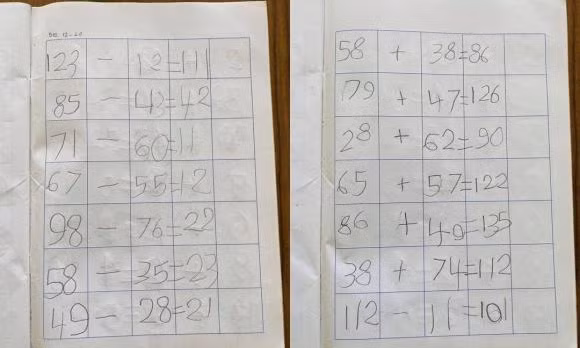 123 - 12=111
85 - 43=42
71 - 60=11
67 - 55=12
98 - 76=22
58 - 35=23
49 - 28=21
58 + 38=86
79 + 47=126
28 + 62=90
65 + 57=122
86 + 49=135
38 + 74=112
112 - 11=101